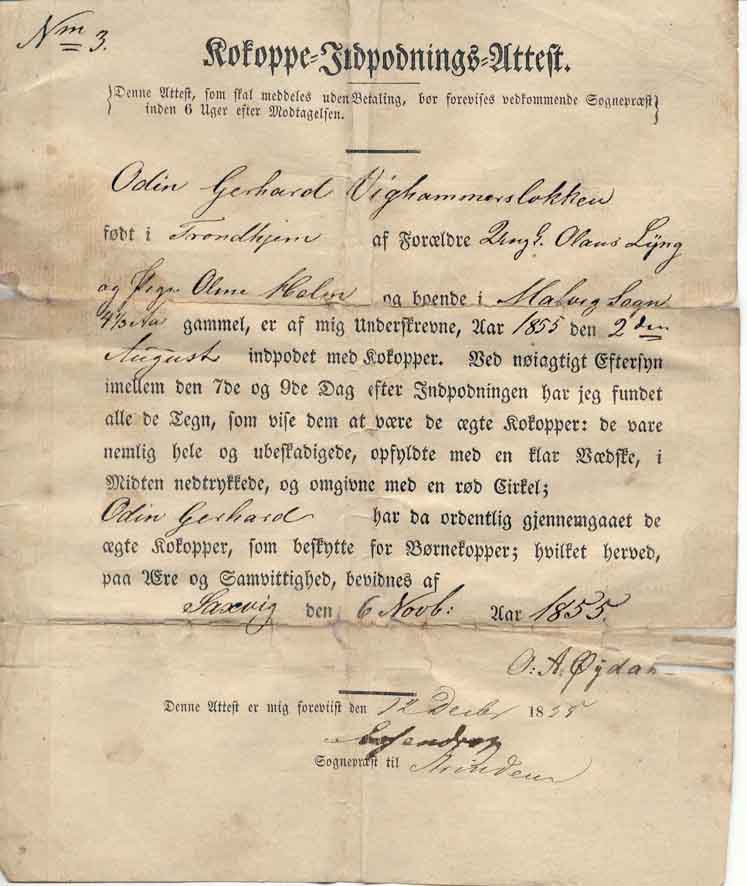 Nm 3.
Kokoppe-Indpodnings-Attest.
Denne Attest, som skal meddeles uden Betaling, bør forevises vedkommende Sognepræst
inden 6 Uger efter Modtagelsen.
Odin Gerhard Vighammersløkken
født i Trondhjem af Forældre Ungk. Olaus Lÿng
og Pige Oline Holm og boende i Malvig Sogn
4 1/3 Aar gammel, er af mig Underskrevne, Aar 1855 den 2den
August indpodet med Kokopper. Ved nøiagtigt Eftersyn
imellem den 7de og 9de Dag efter Indpodningen har jeg fundet
alle de Tegn, som vise dem at være de ægte Kokopper: de vare
nemlig hele og ubeskadigede, opfyldte med en klar Vædske, i
Midten nedtrykkede, og omgivne med en rød Cirkel;
Odin Gerhard har da ordentlig gjennemgaaet de
ægte Kokopper, som beskytte for Børnekopper; hvilket herved,
paa Ære og Samvittighed, bevidnes af
Saxvig den 6 Novb: Aar 1855.
O: A. Øydah
Denne Attest er mig foreviist den 12 Decbr 1855
Sognepræst til Strinden